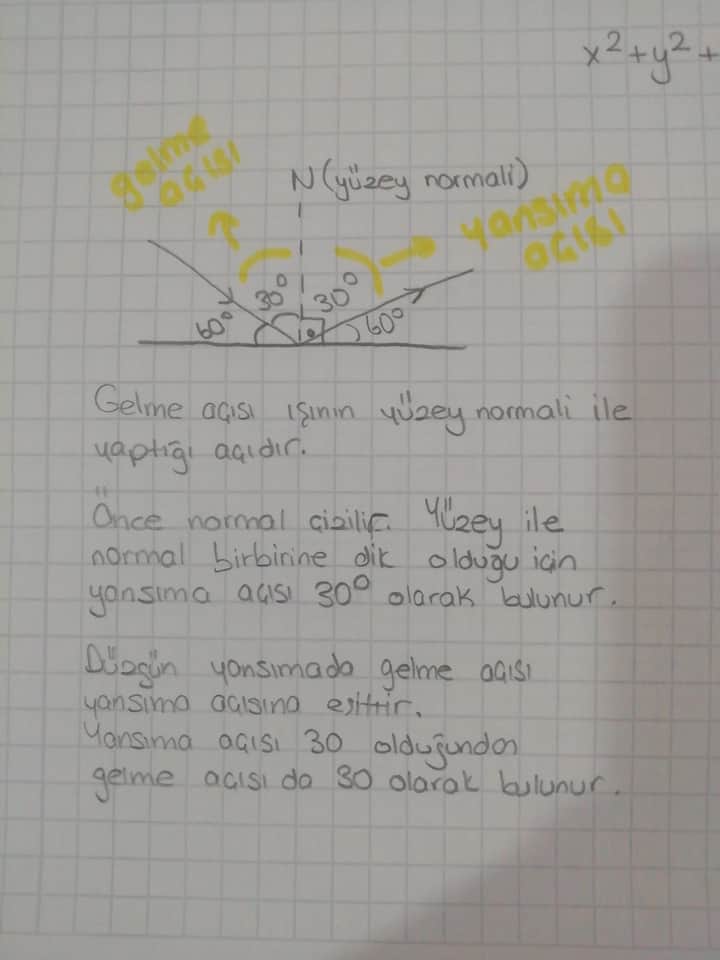 x²+y²+
gelme
açısı
N (yüzey normali)
yansıma
açısı
30° 30°
60° 60°
Gelme açısı ışının yüzey normali ile
yaptığı açıdır.
Önce normal çizilir. Yüzey ile
normal birbirine dik olduğu için
yansıma açısı 30° olarak bulunur.
Düzgün yansımada gelme açısı
yansıma açısına eşittir.
Yansıma açısı 30 olduğundan
gelme açısı da 30 olarak bulunur.